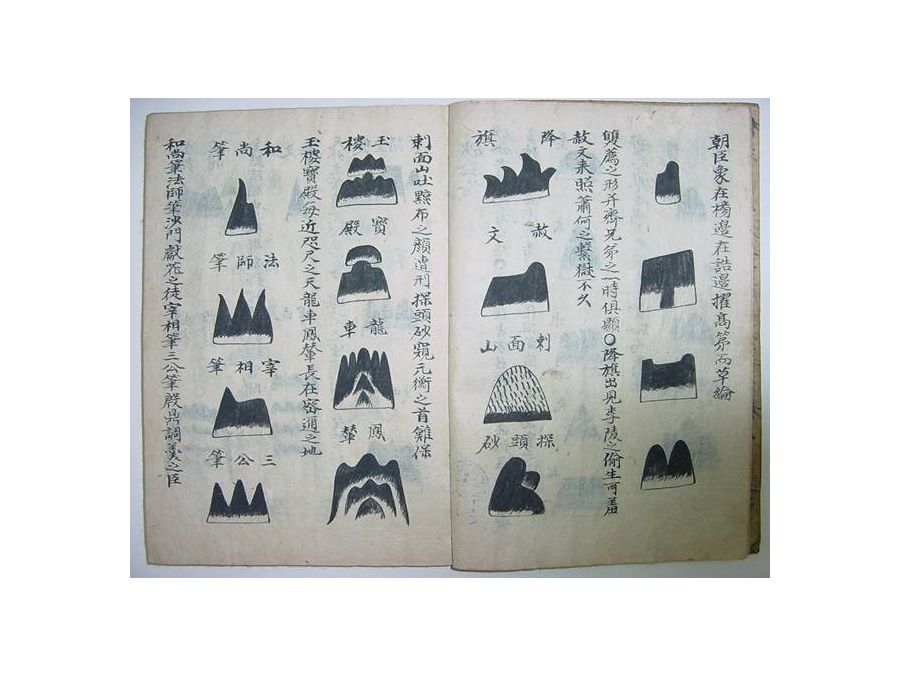 朝臣象在橋邊在誥邊擢高第而草綸
雙薦之形并齊兄弟之一時俱顯〇降旗出見李陵之偷生可羞
赦文来照蕭何之縶獄不久
降旗
赦文
刺面山
探頭砂
刺面山吐黥布之顔遭刑探頭砂窺元衡之首難保
玉樓
寳殿
龍車
鳳輦
玉樓寳殿每近咫尺之天龍車鳳輦長在密通之地
和尚筆
法師筆
宰相筆
三公筆
和尚筆法師筆沙門献花之徒宰相筆三公筆殷鼎調羹之臣